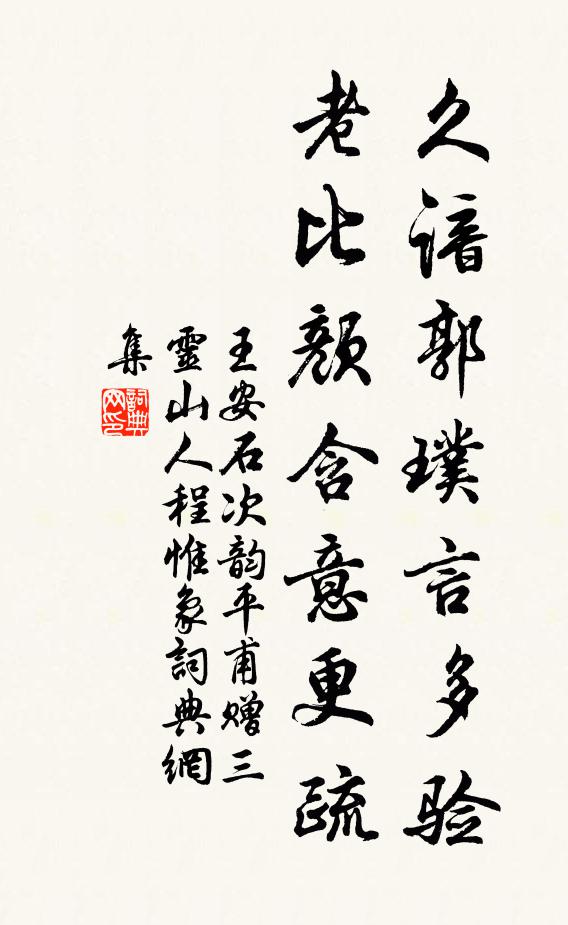 久谙郭璞言多验
老比颜含意更疏
王安石次韵平甫赠三
靈山人程惟象詞典網
集
詞典网印